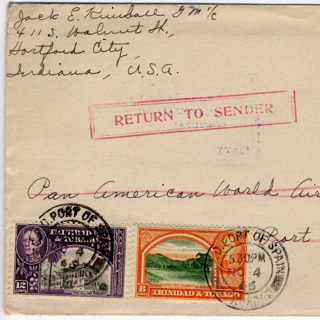 Jack E. Kimball G M 1/c
411 S. Walnut St.,
Hartford City,
Indiana, U.S.A.
RETURN TO SENDER
Pan American World Air
Port
PORT OF SPAIN
TRINIDAD & TOBAGO
12 CENTS
PORT OF SPAIN
5:30 PM
4
8
TRINIDAD & TOBAGO